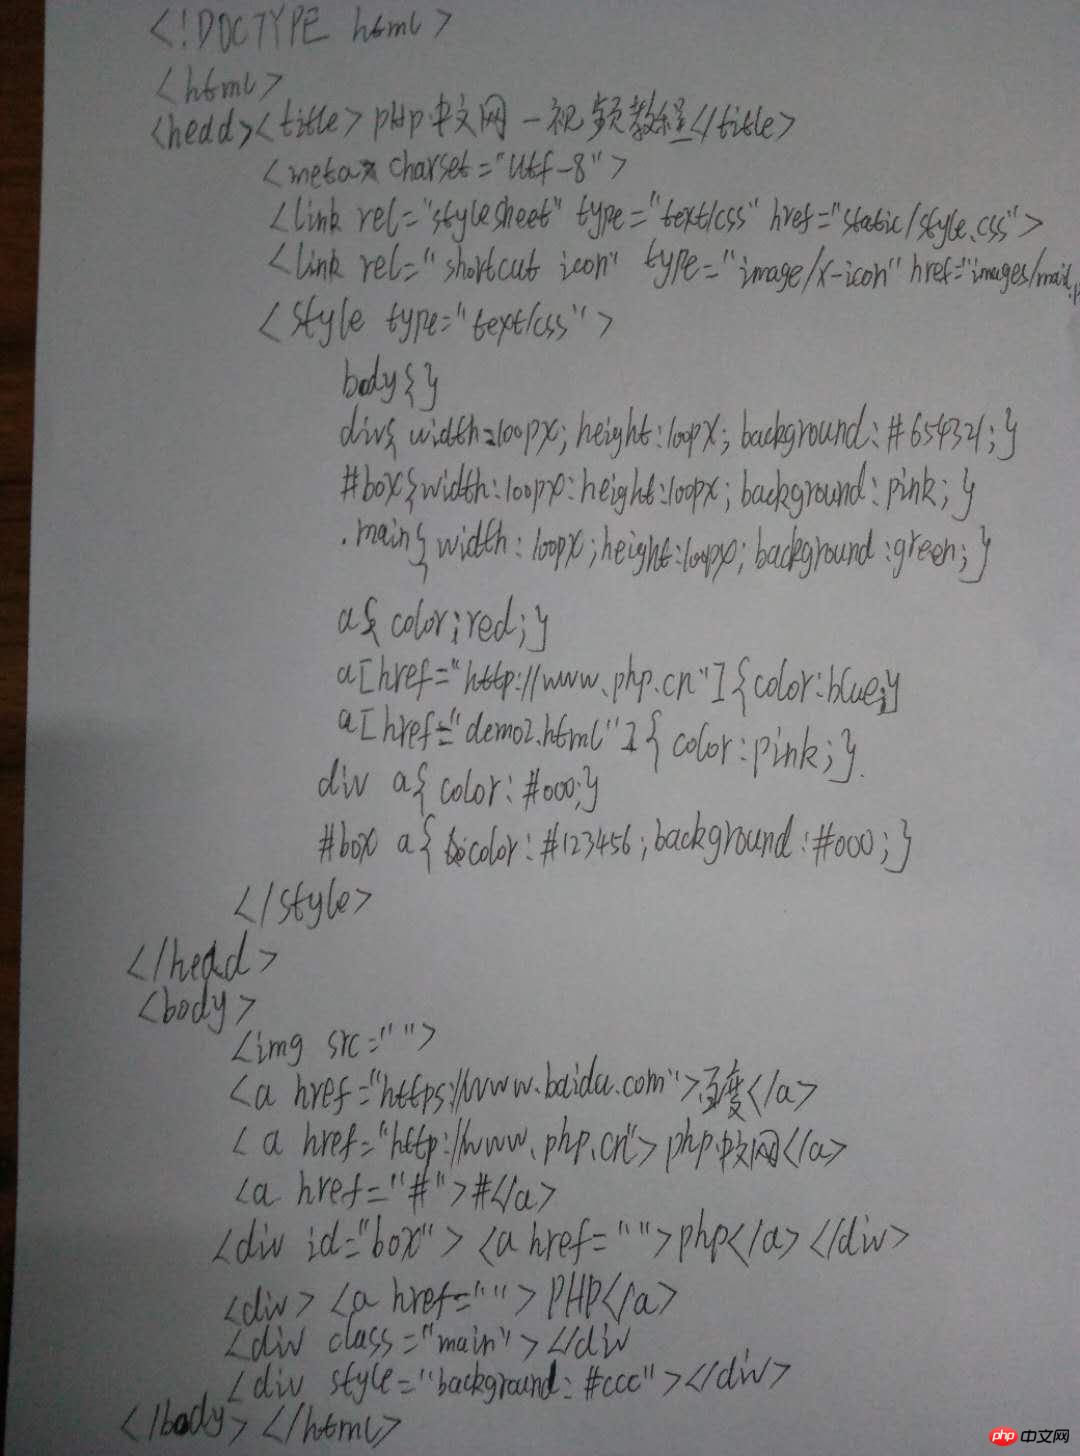 <!DOCTYPE html>
<html>
<hedd><title>pHp中文网-视频教程</title>
<meta charset="utf-8">
<link rel="stylesheet" type="text/css" href="static/style.css">
<link rel="shortcut icon" type="image/x-icon" href="images/mail.p
<style type="text/css">
body{}
div{ width=100px; height:100px; background:#654321;}
#box{width:100px:height:100px; background:pink; }
.main{ width:100px;height:100px; background:green; }
a{ color;red;}
a[href="http://www.php.cn"]{color:blue;}
a[href="demo2.html"]{ color:pink;}
div a{ color:#000;}
#box a{ color:#123456;background:#000;}
</style>
</head>
<body>
<img src="">
<a href="https://www.baidu.com">百度</a>
<a href="http://www.php.cn">php中文网</a>
<a href="#">#</a>
<div id="box"> <a href="">php</a> </div>
<div> <a href=""> PHP</a>
<div class="main"></div
<div style="background:#ccc"></div>
</body></html>
php 中文网